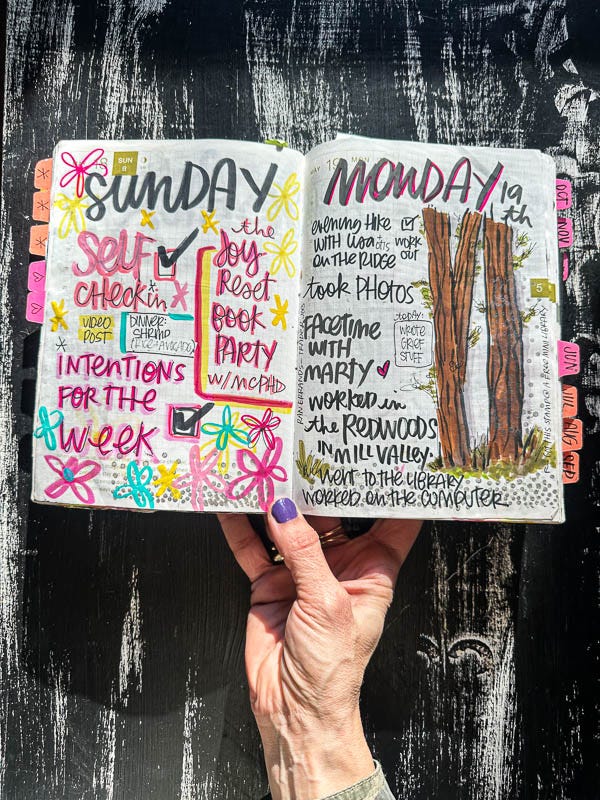 SUN
8
SUNDAY
SELF
CHECK in
VIDEO
POST
DINNER:
SHRIMP
(RICE+AVOCADO)
INTENTIONS
FOR THE
WEEK
the
Joy
Reset
BOOK
PARTY
W/MCPHD
19 MON
MONDAY 19
th
evening Hike
WITH Lisa
ON THE RIDGE
WORK
OUT
took PHOTOS
FACETIME
WITH
MARTY
today:
WROTE
GRIEF
STUFF
WORKED in
the REDWOODS
IN MILL VALLEY.
WENT TO the LIBRARY
WORKED ON the COMPUTER
5
OCT
NOV
JUN
JUL
AUG